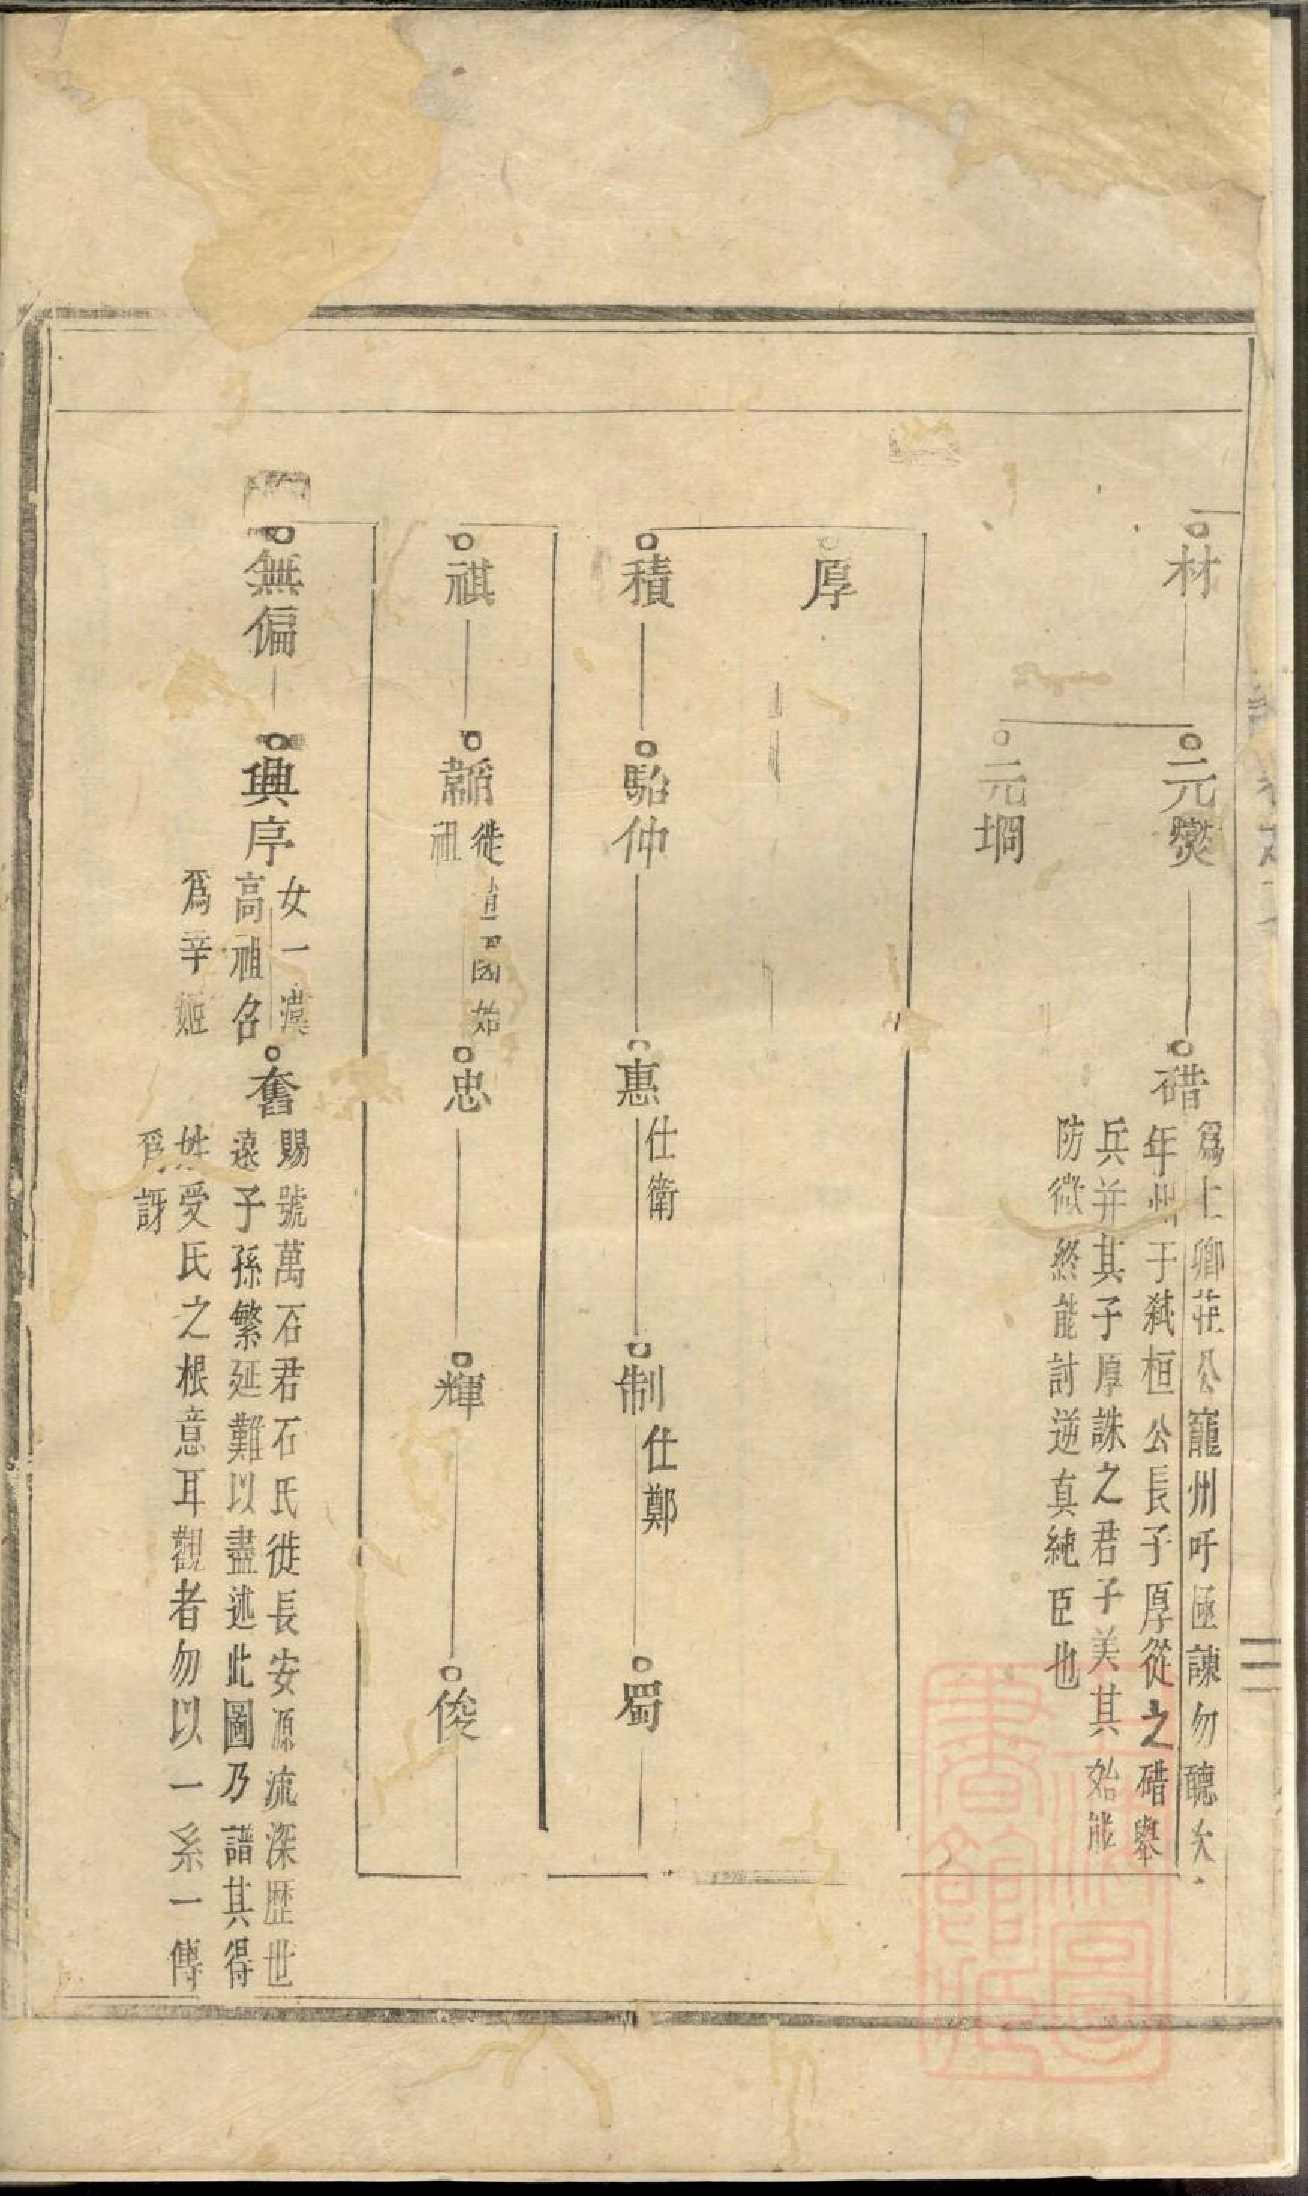 材
元爕
元堈
碏
爲上卿莊公寵州吁亟諫勿聽次
年州于弒桓公長子厚從之碏舉
兵并其子厚誅之君子美其始能
防微終能討逆真純臣也
厚
積
駘仲
惠
仕衛
制
仕鄭
蜀
祺
韜
徙趙國始
祖
忠
輝
俊
無偏
興序
女一漢
高祖名
爲辛姬
奮
賜號萬石君石氏徙長安源流深歷世
遠子孫繁延難以盡述此圖乃譜其得
姓受氏之根意耳觀者勿以一系一傳
爲訝